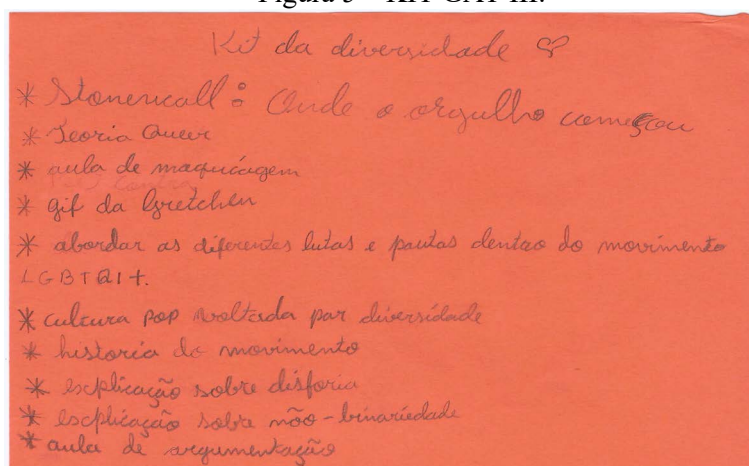 Figura 3 – KIT GAY III.
Kit da diversidade ♡
* Stonewall: Onde o orgulho começou
* Teoria Queer
* aula de maquiagem
* gif da Gretchen
* abordar as diferentes lutas e pautas dentro do movimento
LGBTQI+.
* cultura pop voltada par diversidade
* historia do movimento
* explicação sobre disforia
* explicação sobre não-binariedade
* aula de argumentação